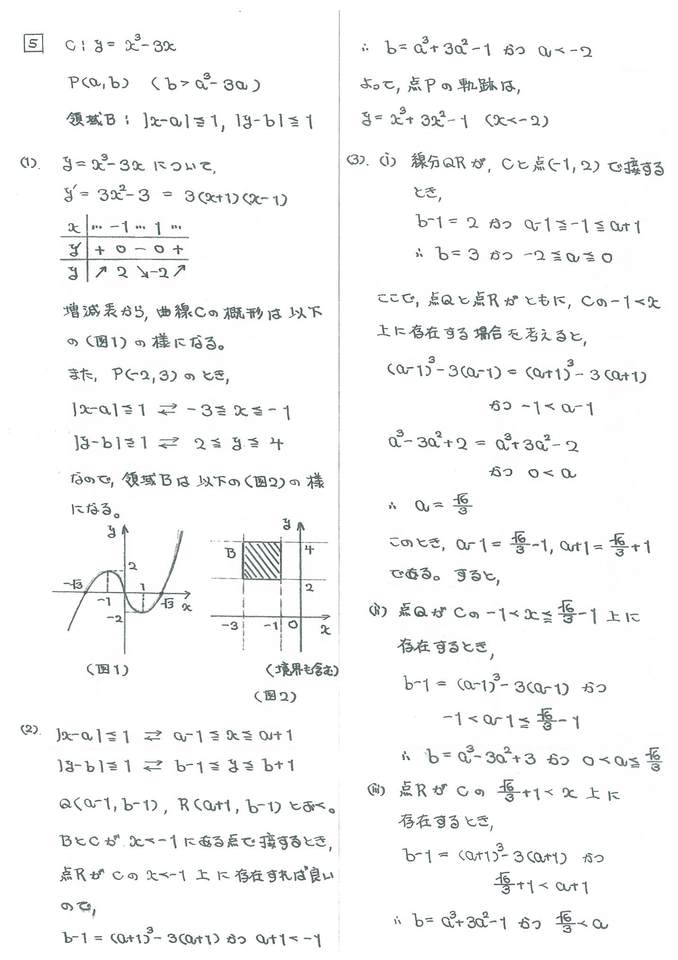 5 C : y = x³-3x
P(a,b) (b > a³-3a)
領域B : |x-a|≦1, |y-b|≦1
(1). y=x³-3x について,
y' = 3x²-3 = 3(x+1)(x-1)
x | … -1 … 1 …
y' | + 0 - 0 +
y | ↗ 2 ↘ -2 ↗
増減表から, 曲線Cの概形は以下
の(図1)の様になる。
また, P(-2,3)のとき,
|x-a|≦1 ⇄ -3≦x≦-1
|y-b|≦1 ⇄ 2≦y≦4
なので, 領域Bは以下の(図2)の様
になる。
y
2
-√3 -1 1 √3 x
-2
(図1)
y
B 4
2
-3 -1 0 x
(境界も含む)
(図2)
(2). |x-a|≦1 ⇄ a-1≦x≦a+1
|y-b|≦1 ⇄ b-1≦y≦b+1
Q(a-1,b-1), R(a+1,b-1)とおく。
BとCがx<-1にある点で接するとき,
点RがCのx<-1上に存在すれば良い
ので,
b-1=(a+1)³-3(a+1) かつ a+1<-1
∴ b=a³+3a²-1 かつ a<-2
よって, 点Pの軌跡は,
y=x³+3x²-1 (x<-2)
(3). (i) 線分QRが, Cと点(-1,2)で接する
とき,
b-1=2 かつ a-1≦-1≦a+1
∴ b=3 かつ -2≦a≦0
ここで, 点Qと点Rがともに, Cの-1<x
上に存在する場合を考えると,
(a-1)³-3(a-1)=(a+1)³-3(a+1)
かつ -1<a-1
a³-3a²+2=a³+3a²-2
かつ 0<a
∴ a=√6/3
このとき, a-1=√6/3-1, a+1=√6/3+1
である。すると,
(ii) 点QがCの-1<x≦√6/3-1上に
存在するとき,
b-1=(a-1)³-3(a-1) かつ
-1<a-1≦√6/3-1
∴ b=a³-3a²+3 かつ 0<a≦√6/3
(iii) 点RがCの√6/3+1<x上に
存在するとき,
b-1=(a+1)³-3(a+1) かつ
√6/3+1<a+1
∴ b=a³+3a²-1 かつ √6/3<a